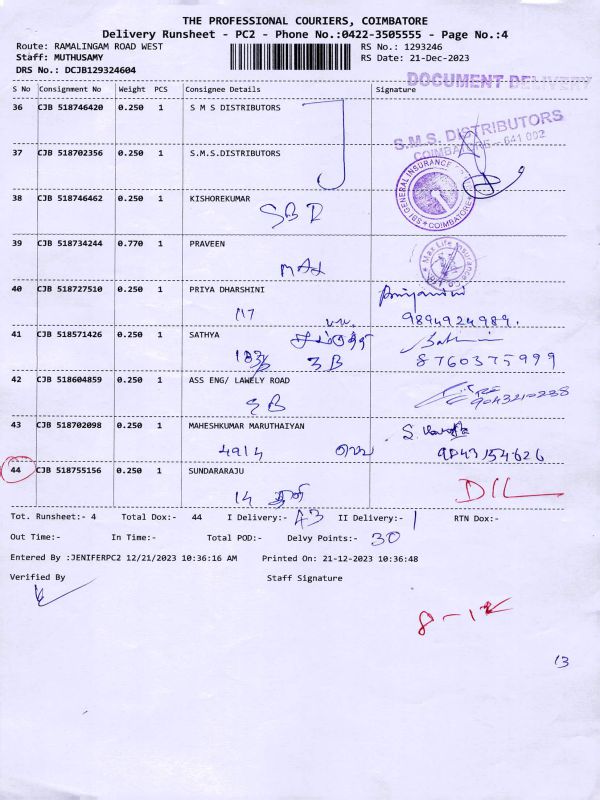 THE PROFESSIONAL COURIERS, COIMBATORE
Delivery Runsheet - PC2 - Phone No.:0422-3505555 - Page No.:4
Route: RAMALINGAM ROAD WEST RS No.: 1293246
Staff: MUTHUSAMY RS Date: 21-Dec-2023
DRS No.: DCJB129324604
DOCUMENT DELIVERY
S No Consignment No Weight PCS Consignee Details Signature
36 CJB 518746420 0.250 1 S M S DISTRIBUTORS
S.M.S. DISTRIBUTORS
COIMBATORE - 641 002
37 CJB 518702356 0.250 1 S.M.S.DISTRIBUTORS
38 CJB 518746462 0.250 1 KISHOREKUMAR
SBI GENERAL INSURANCE
COIMBATORE
39 CJB 518734244 0.770 1 PRAVEEN
Max Life Insurance
MAX
40 CJB 518727510 0.250 1 PRIYA DHARSHINI
117
9894924989.
41 CJB 518571426 0.250 1 SATHYA
3B 8760375999
42 CJB 518604859 0.250 1 ASS ENG/ LAWELY ROAD
9043210238
43 CJB 518702098 0.250 1 MAHESHKUMAR MARUTHAIYAN
4914 9843154626
44 CJB 518755156 0.250 1 SUNDARARAJU
14 D/L
Tot. Runsheet:- 4 Total Dox:- 44 I Delivery:- 43 II Delivery:- 1 RTN Dox:-
Out Time:- In Time:- Total POD:- Delvy Points:- 30
Entered By :JENIFERPC2 12/21/2023 10:36:16 AM Printed On: 21-12-2023 10:36:48
Verified By Staff Signature
13